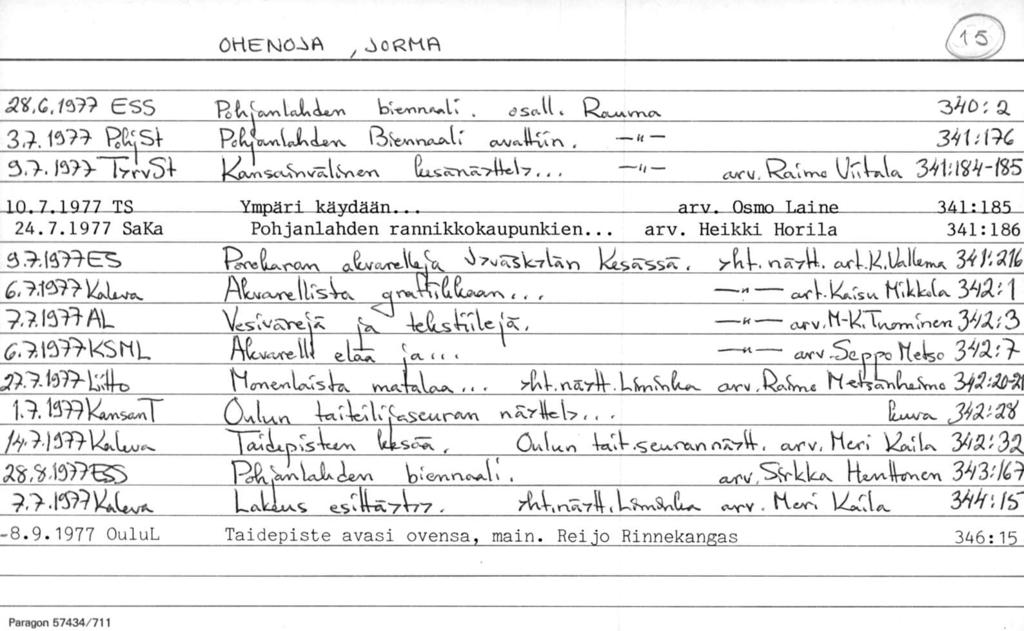 OHENOJA , JORMA 15
28.6.1977 ESS Pohjanlahden biennaali. osall. Rauma 340:2
3.7.1977 PohjSt Pohjanlahden Biennaali avattiin. —"— 341:176
9.7.1977 TyrvSt Kansainvälinen kesänäyttely... —"— arv. Raimo Viitala 341:184-185
10.7.1977 TS Ympäri käydään... arv. Osmo Laine 341:185
24.7.1977 SaKa Pohjanlahden rannikkokaupunkien... arv. Heikki Horila 341:186
9.7.1977 ES Porokaran akvarelleja Jyväskylän Kesässä. yht. näytt. art. K. Vallema 341:216
6.7.1977 Kaleva Akvarellista grafiikkaan... —"— art. Kaisu Mikkola 342:1
7.7.1977 AL Vesivärejä ja tekstiilejä. —"— arv. M-K. Tuominen 342:3
6.7.1977 KSML Akvarelli elää ja... —"— arv. Seppo Metso 342:7
27.7.1977 Liitto Monenlaista matalaa... yht. näytt. Liminka arv. Raimo Metsänheimo 342:20-21
1.7.1977 KansanT Oulun taiteilijaseuran näyttely... kuva 342:28
14.7.1977 Kaleva Taidepisteen kesää. Oulun tait.seuran näytt. arv. Meri Kaila 342:32
28.8.1977 ESS Pohjanlahden biennaali. arv. Sirkka Henttonen 343:167
7.7.1977 Kaleva Lakeus esittäytyy. yht.näytt. Liminka arv. Meri Kaila 344:15
-8.9.1977 OuluL Taidepiste avasi ovensa, main. Reijo Rinnekangas 346:15
Paragon 57434/711